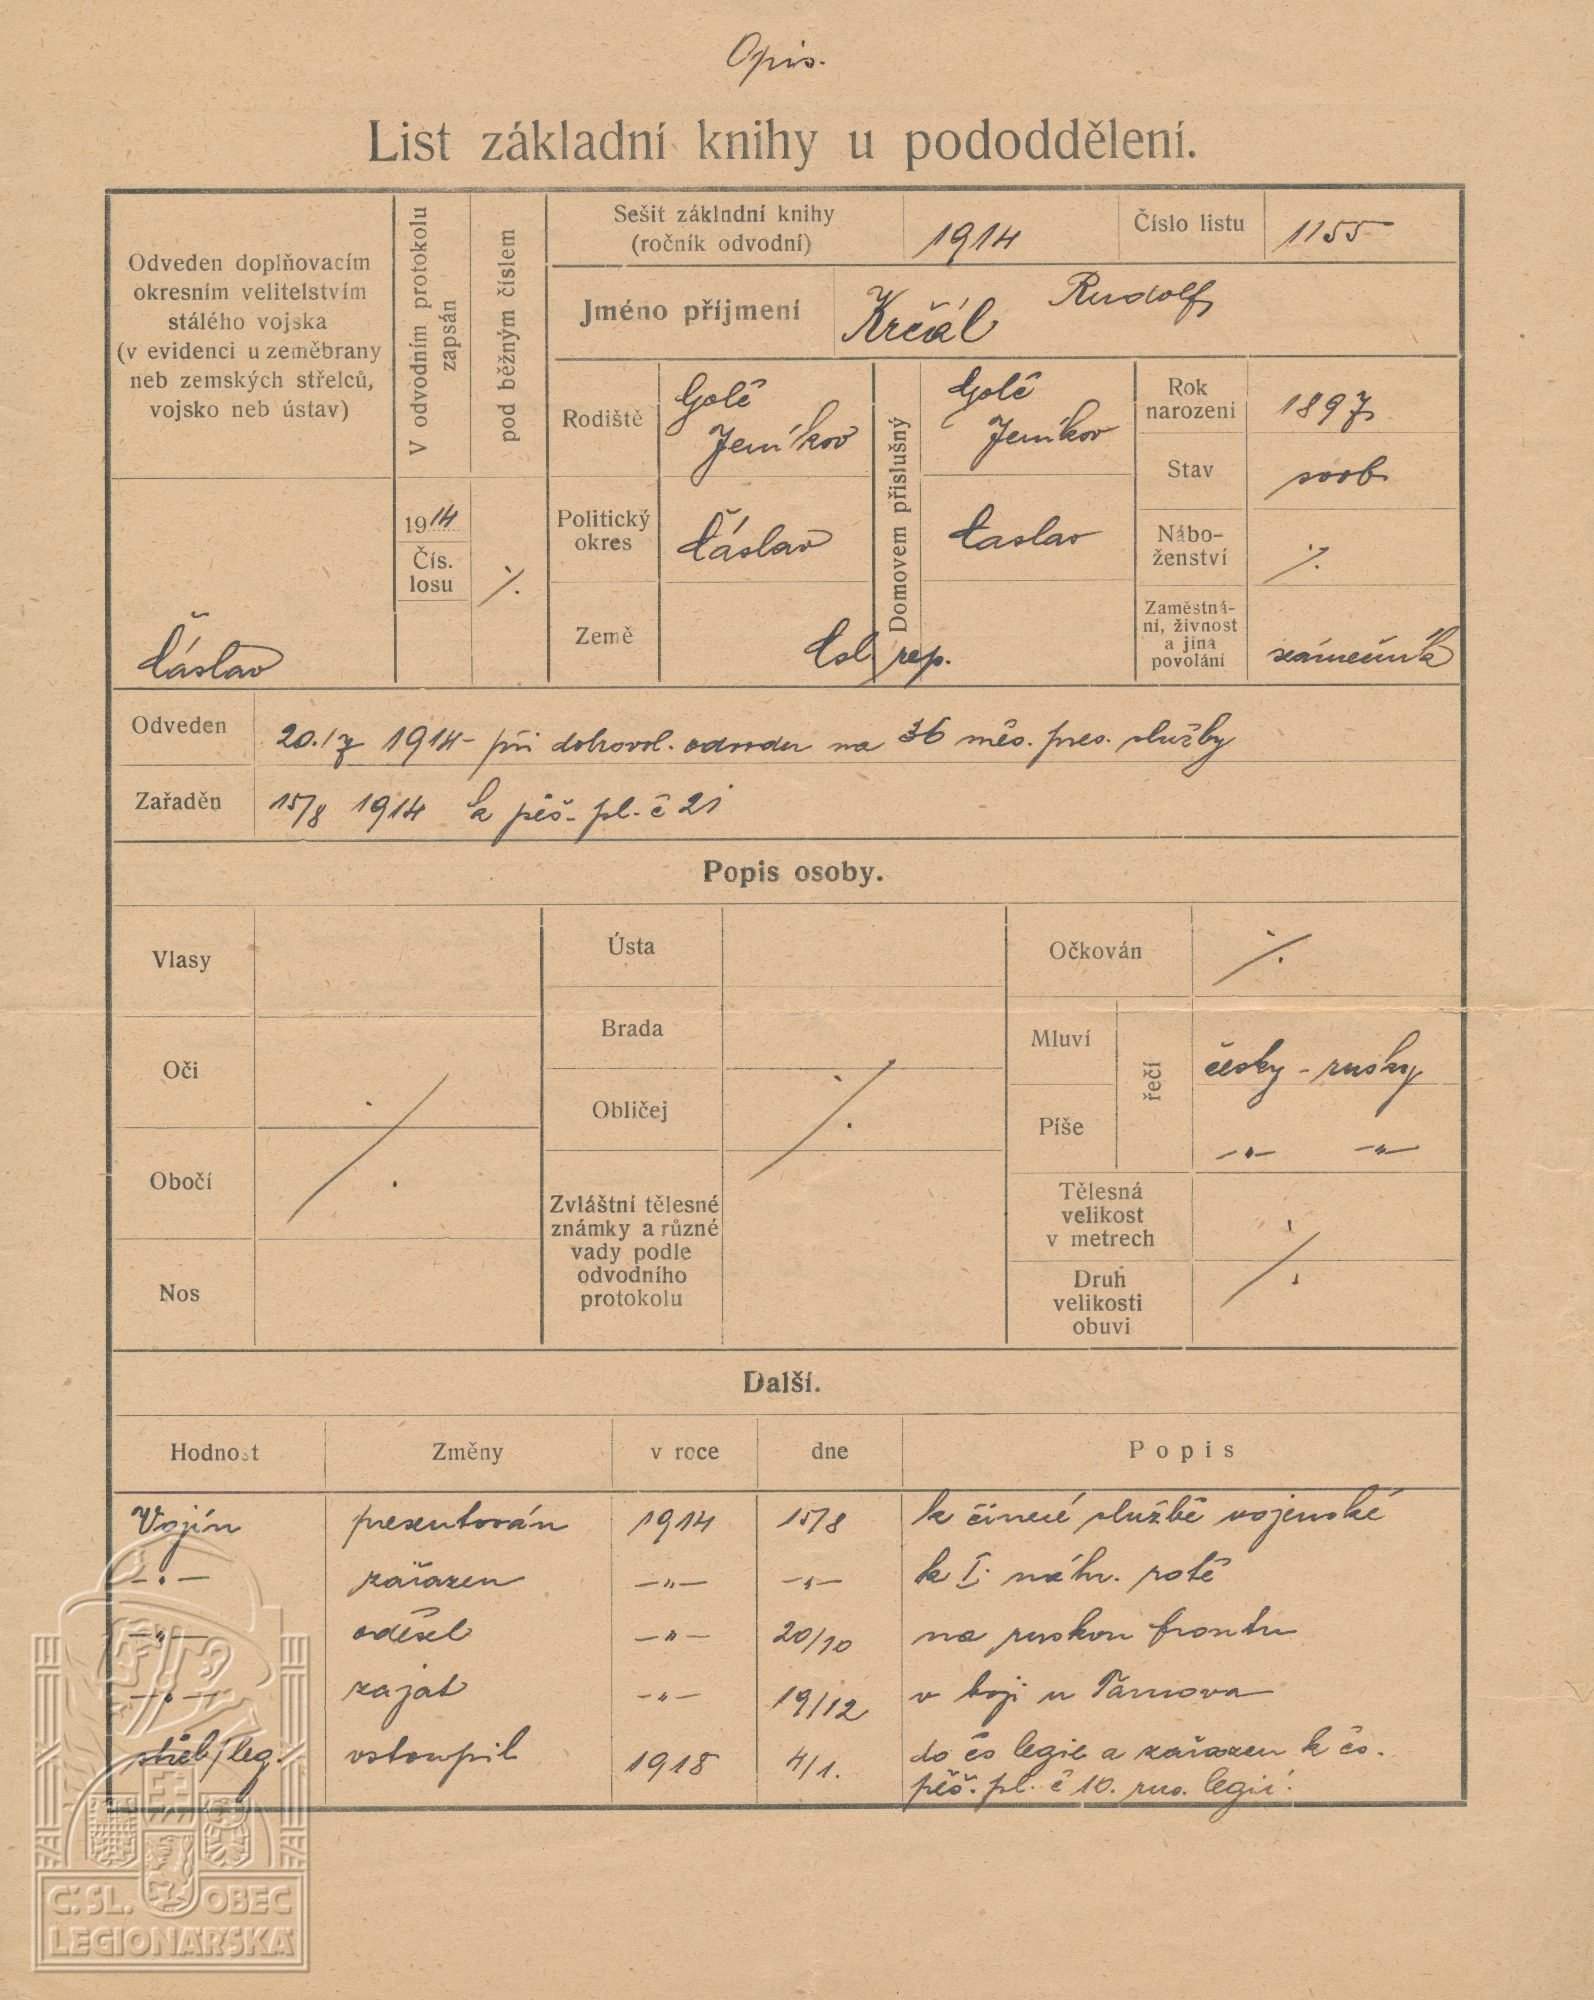 Opis.
List základní knihy u pododdělení.
Odveden doplňovacím
okresním velitelstvím
stálého vojska
(v evidenci u zeměbrany
neb zemských střelců,
vojsko neb ústav)
Čáslav
V odvodním protokolu
zapsán
1914
Čís.
losu
pod běžným číslem
Sešit základní knihy
(ročník odvodní)
1914
Číslo listu
1155
Jméno příjmení
Krčál Rudolf
Rodiště
Golč
Jeníkov
Domovem příslušný
Golč
Jeníkov
Rok
narození
1897
Stav
svob
Politický
okres
Čáslav
Časlav
Nábo-
ženství
Země
Čsl rep.
Zaměstná-
ní, živnost
a jina
povolání
zámečník
Odveden
20./7 1914 - při dobrovol. odvodu na 36 měs. pres. služby
Zařaděn
15/8 1914 k pěš. pl. č 21
Popis osoby.
Vlasy
Oči
Obočí
Nos
Ústa
Brada
Obličej
Zvláštní tělesné
známky a různé
vady podle
odvodního
protokolu
Očkován
Mluví
Píše
řečí
česky - rusky
-„- -„-
Tělesná
velikost
v metrech
Druh
velikosti
obuvi
Další.
Hodnost Změny v roce dne Popis
Vojín presentován 1914 15/8 k činné službě vojenské
-„- zařazen -„- -„- k I. náhr. rotě
-„- odešel -„- 20/10 na ruskou frontu
-„- zajat -„- 19/12 v boji u Tarnova
střel/leg. vstoupil 1918 4/1. do čs legie a zařazen k čs.
pěš. pl. č 10. rus. legií.
Č.SL. OBEC
LEGIONÁŘSKÁ